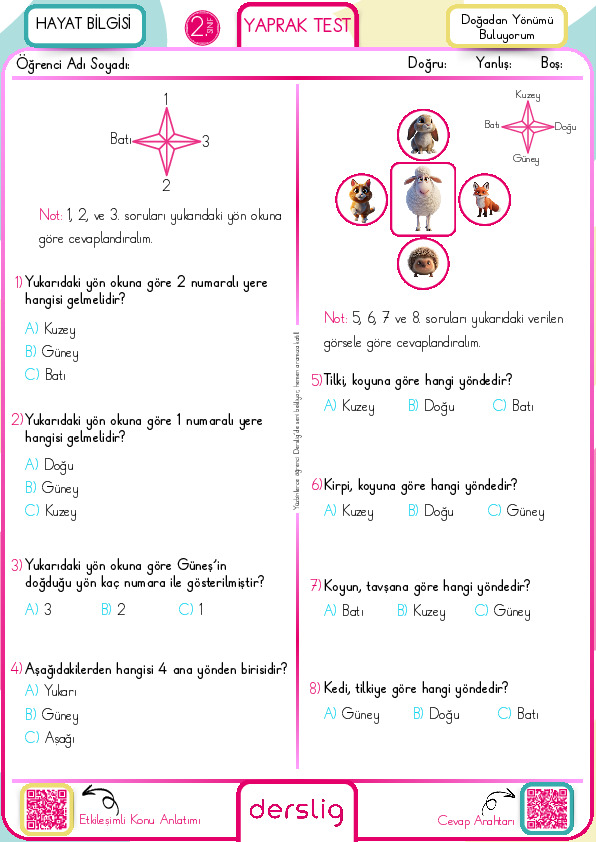 HAYAT BİLGİSİ
2. SINIF
YAPRAK TEST
Doğadan Yönümü
Buluyorum
Öğrenci Adı Soyadı:
Doğru:
Yanlış:
Boş:
1
Batı
3
2
Not: 1, 2, ve 3. soruları yukarıdaki yön okuna
göre cevaplandıralım.
1) Yukarıdaki yön okuna göre 2 numaralı yere
hangisi gelmelidir?
A) Kuzey
B) Güney
C) Batı
2) Yukarıdaki yön okuna göre 1 numaralı yere
hangisi gelmelidir?
A) Doğu
B) Güney
C) Kuzey
3) Yukarıdaki yön okuna göre Güneş’in
doğduğu yön kaç numara ile gösterilmiştir?
A) 3 B) 2 C) 1
4) Aşağıdakilerden hangisi 4 ana yönden birisidir?
A) Yukarı
B) Güney
C) Aşağı
Kuzey
Batı
Doğu
Güney
Not: 5, 6, 7 ve 8. soruları yukarıdaki verilen
görsele göre cevaplandıralım.
5) Tilki, koyuna göre hangi yöndedir?
A) Kuzey B) Doğu C) Batı
6) Kirpi, koyuna göre hangi yöndedir?
A) Kuzey B) Doğu C) Güney
7) Koyun, tavşana göre hangi yöndedir?
A) Batı B) Kuzey C) Güney
8) Kedi, tilkiye göre hangi yöndedir?
A) Güney B) Doğu C) Batı
Etkileşimli Konu Anlatımı
derslig
Cevap Anahtarı